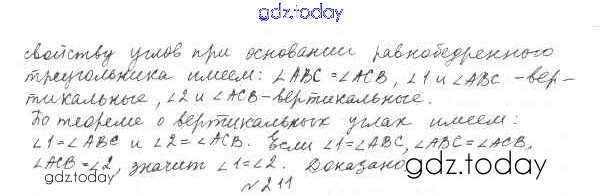 gdz.today
свойству углов при основании равнобедренного
треугольника имеем: ∠ABC = ∠ACB, ∠1 и ∠ABC - вер-
тикальные, ∠2 и ∠ACB - вертикальные.
По теореме о вертикальных углах имеем:
∠1 = ∠ABC и ∠2 = ∠ACB. Если ∠1 = ∠ABC, ∠ABC = ∠ACB,
∠ACB = ∠2, значит ∠1 = ∠2. Доказано
gdz.today
gdz.today
№ 211